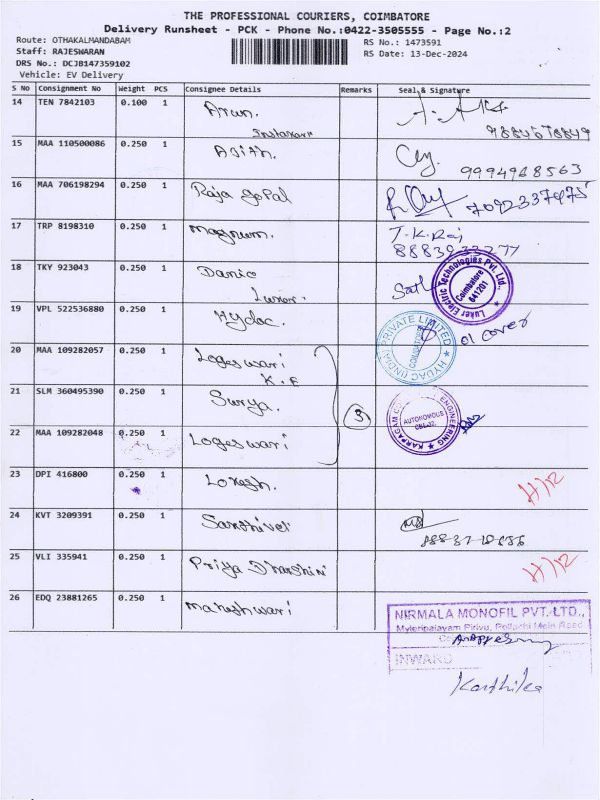 THE PROFESSIONAL COURIERS, COIMBATORE
Delivery Runsheet - PCK - Phone No.:0422-3505555 - Page No.:2
Route: OTHAKALMANDABAM
RS No.: 1473591
Staff: RAJESWARAN
RS Date: 13-Dec-2024
DRS No.: DCJB147359102
Vehicle: EV Delivery
S No Consignment No Weight PCS Consignee Details Remarks Seal & Signature
14 TEN 7842103 0.100 1 Arun.
15 MAA 110500086 0.250 1 Asith. 9994968563
16 MAA 706198294 0.250 1 Raja gopal
17 TRP 8198310 0.250 1 Magnum. T.K.Raj
18 TKY 923043 0.250 1
Luker Electric Technologies Pvt. Ltd., Coimbatore 641201
19 VPL 522536880 0.250 1 Hydac. 01 cover
HYDAC (INDIA) PRIVATE LIMITED
20 MAA 109282057 0.250 1 Logeswari
K.E
21 SLM 360495390 0.250 1 Surya. 3
AUTONOMOUS
ENGINEERING
22 MAA 109282048 0.250 1 Logeswari
23 DPI 416800 0.250 1 Lokesh.
24 KVT 3209391 0.250 1
25 VLI 335941 0.250 1 Priya Dharshini
26 EDQ 23881265 0.250 1 Maheshwari
NIRMALA MONOFIL PVT. LTD.,
Myleripalayam Pirivu, Pollachi Main Road
INWARD
Karthika